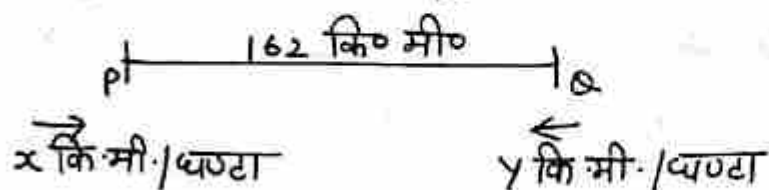 162 कि० मी०
P Q
x कि.मी./घण्टा y कि.मी./घण्टा